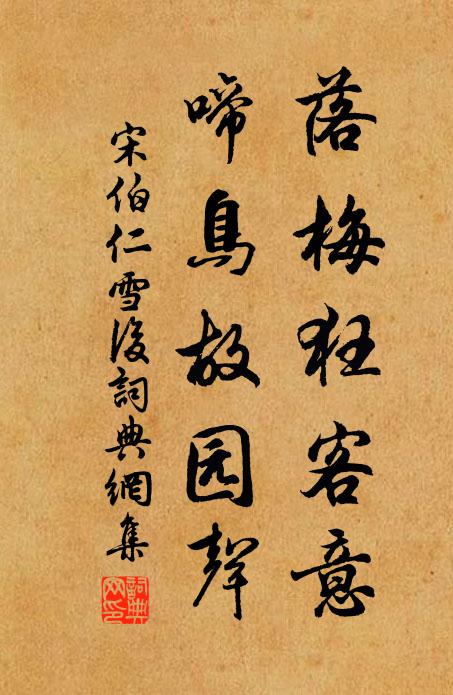 落梅狂客意
啼鳥故园聲
宋伯仁雪後詞典網集
詞典网印